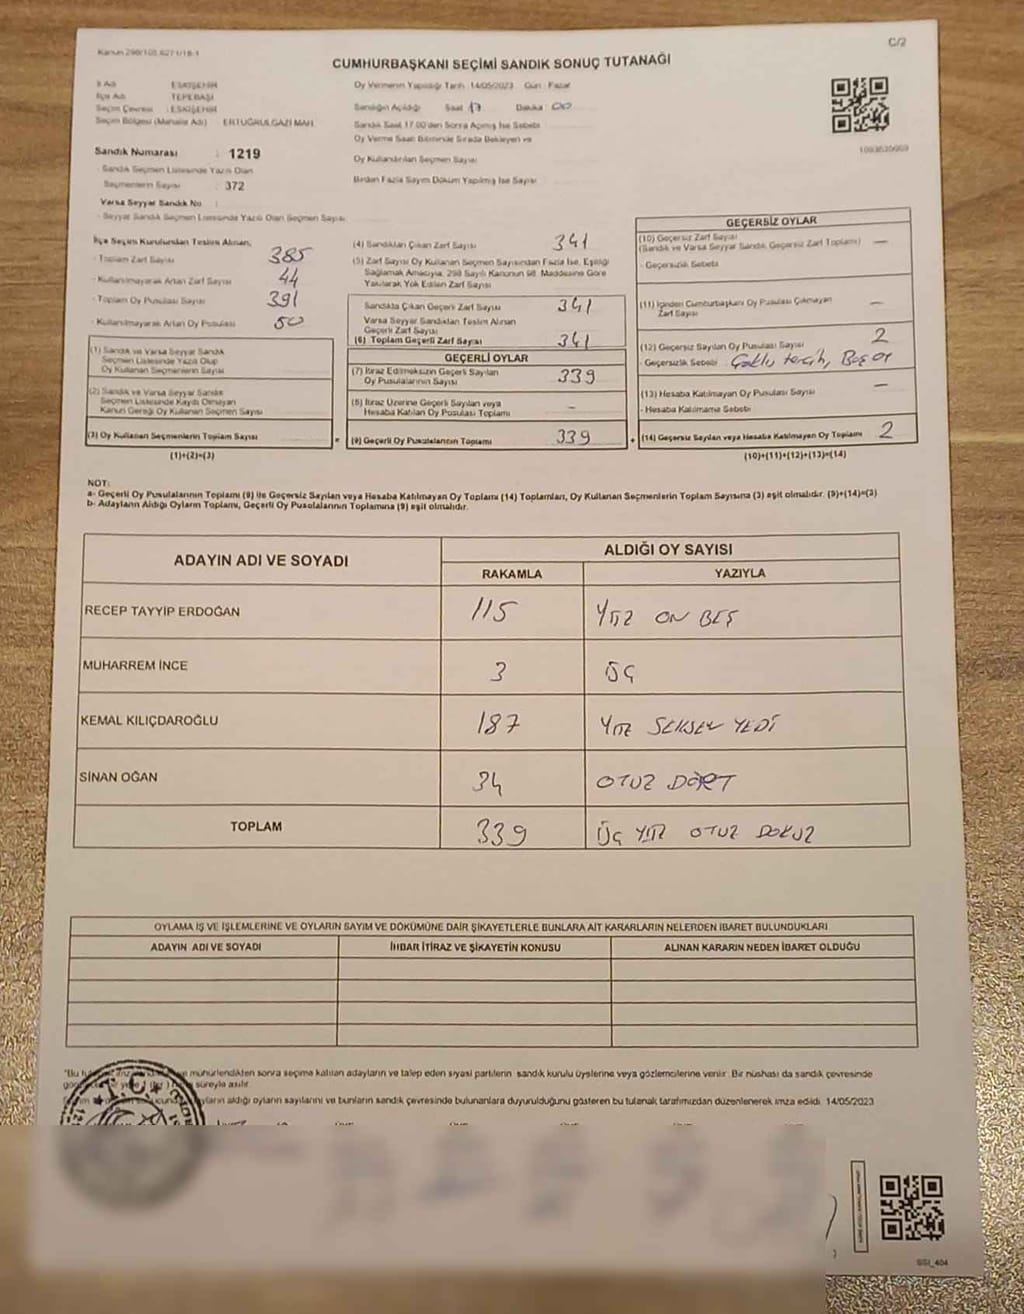 Kanun 298/105,6271/18-1
C/2
CUMHURBAŞKANI SEÇİMİ SANDIK SONUÇ TUTANAĞI
İl Adı : ESKİŞEHİR
İlçe Adı : TEPEBAŞI
Seçim Çevresi : ESKİŞEHİR
Seçim Bölgesi (Mahalle Adı) : ERTUĞRULGAZİ MAH.
Sandık Numarası : 1219
- Sandık Seçmen Listesinde Yazılı Olan
Seçmenlerin Sayısı : 372
Varsa Seyyar Sandık No :
- Seyyar Sandık Seçmen Listesinde Yazılı Olan Seçmen Sayısı
Oy Vermenin Yapıldığı Tarih 14/05/2023 Gün : Pazar
Sandığın Açıldığı Saat 17 Dakika 00
Sandık Saat 17.00'den Sonra Açılmış İse Sebebi
Oy Verme Saati Bitiminde Sırada Bekleyen ve
Oy Kullandırılan Seçmen Sayısı
Birden Fazla Sayım Döküm Yapılmış İse Sayısı
İlçe Seçim Kurulundan Teslim Alınan;
- Toplam Zarf Sayısı 385
- Kullanılmayarak Artan Zarf Sayısı 44
- Toplam Oy Pusulası Sayısı 391
- Kullanılmayarak Artan Oy Pusulası 50
(1) Sandık ve Varsa Seyyar Sandık
Seçmen Listesinde Yazılı Olup
Oy Kullanan Seçmenlerin Sayısı
(2) Sandık ve Varsa Seyyar Sandık
Seçmen Listesinde Kaydı Olmayan
Kanun Gereği Oy Kullanan Seçmen Sayısı
(3) Oy Kullanan Seçmenlerin Toplam Sayısı
(1)+(2)=(3)
(4) Sandıktan Çıkan Zarf Sayısı 341
(5) Zarf Sayısı Oy Kullanan Seçmen Sayısından Fazla İse, Eşitliği
Sağlamak Amacıyla, 298 Sayılı Kanunun 98. Maddesine Göre
Yakılarak Yok Edilen Zarf Sayısı
Sandıkta Çıkan Geçerli Zarf Sayısı 341
Varsa Seyyar Sandıktan Teslim Alınan
Geçerli Zarf Sayısı
(6) Toplam Geçerli Zarf Sayısı 341
GEÇERLİ OYLAR
(7) İtiraz Edilmeksizin Geçerli Sayılan
Oy Pusulalarının Sayısı 339
(8) İtiraz Üzerine Geçerli Sayılan veya
Hesaba Katılan Oy Pusulası Toplamı -
= (9) Geçerli Oy Pusulalarının Toplamı 339
GEÇERSİZ OYLAR
(10) Geçersiz Zarf Sayısı
(Sandık ve Varsa Seyyar Sandık Geçersiz Zarf Toplamı) —
- Geçersizlik Sebebi
(11) İçinden Cumhurbaşkanı Oy Pusulası Çıkmayan
Zarf Sayısı —
(12) Geçersiz Sayılan Oy Pusulası Sayısı 2
- Geçersizlik Sebebi Çoklu tercih, Boş oy
(13) Hesaba Katılmayan Oy Pusulası Sayısı —
- Hesaba Katılmama Sebebi
+ (14) Geçersiz Sayılan veya Hesaba Katılmayan Oy Toplamı 2
(10)+(11)+(12)+(13)=(14)
NOT:
a- Geçerli Oy Pusulalarının Toplamı (9) ile Geçersiz Sayılan veya Hesaba Katılmayan Oy Toplamı (14) Toplamları, Oy Kullanan Seçmenlerin Toplam Sayısına (3) eşit olmalıdır. (9)+(14)=(3)
b- Adayların Aldığı Oyların Toplamı, Geçerli Oy Pusulalarının Toplamına (9) eşit olmalıdır.
ADAYIN ADI VE SOYADI
ALDIĞI OY SAYISI
RAKAMLA YAZIYLA
RECEP TAYYİP ERDOĞAN 115 YÜZ ON BEŞ
MUHARREM İNCE 3 ÜÇ
KEMAL KILIÇDAROĞLU 187 YÜZ SEKSEN YEDİ
SİNAN OĞAN 34 OTUZ DÖRT
TOPLAM 339 ÜÇ YÜZ OTUZ DOKUZ
OYLAMA İŞ VE İŞLEMLERİNE VE OYLARIN SAYIM VE DÖKÜMÜNE DAİR ŞİKAYETLERLE BUNLARA AİT KARARLARIN NELERDEN İBARET BULUNDUKLARI
ADAYIN ADI VE SOYADI İHBAR İTİRAZ VE ŞİKAYETİN KONUSU ALINAN KARARIN NEDEN İBARET OLDUĞU
"Bu mühürlendikten sonra seçime katılan adayların ve talep eden siyasi partilerin sandık kurulu üyelerine veya gözlemcilerine verilir. Bir nüshası da sandık çevresinde
yere 1 (bir) süreyle asılır.
aldığı oyların sayılarını ve bunların sandık çevresinde bulunanlara duyurulduğunu gösteren bu tutanak tarafımızdan düzenlenerek imza edildi. 14/05/2023
SSI_404